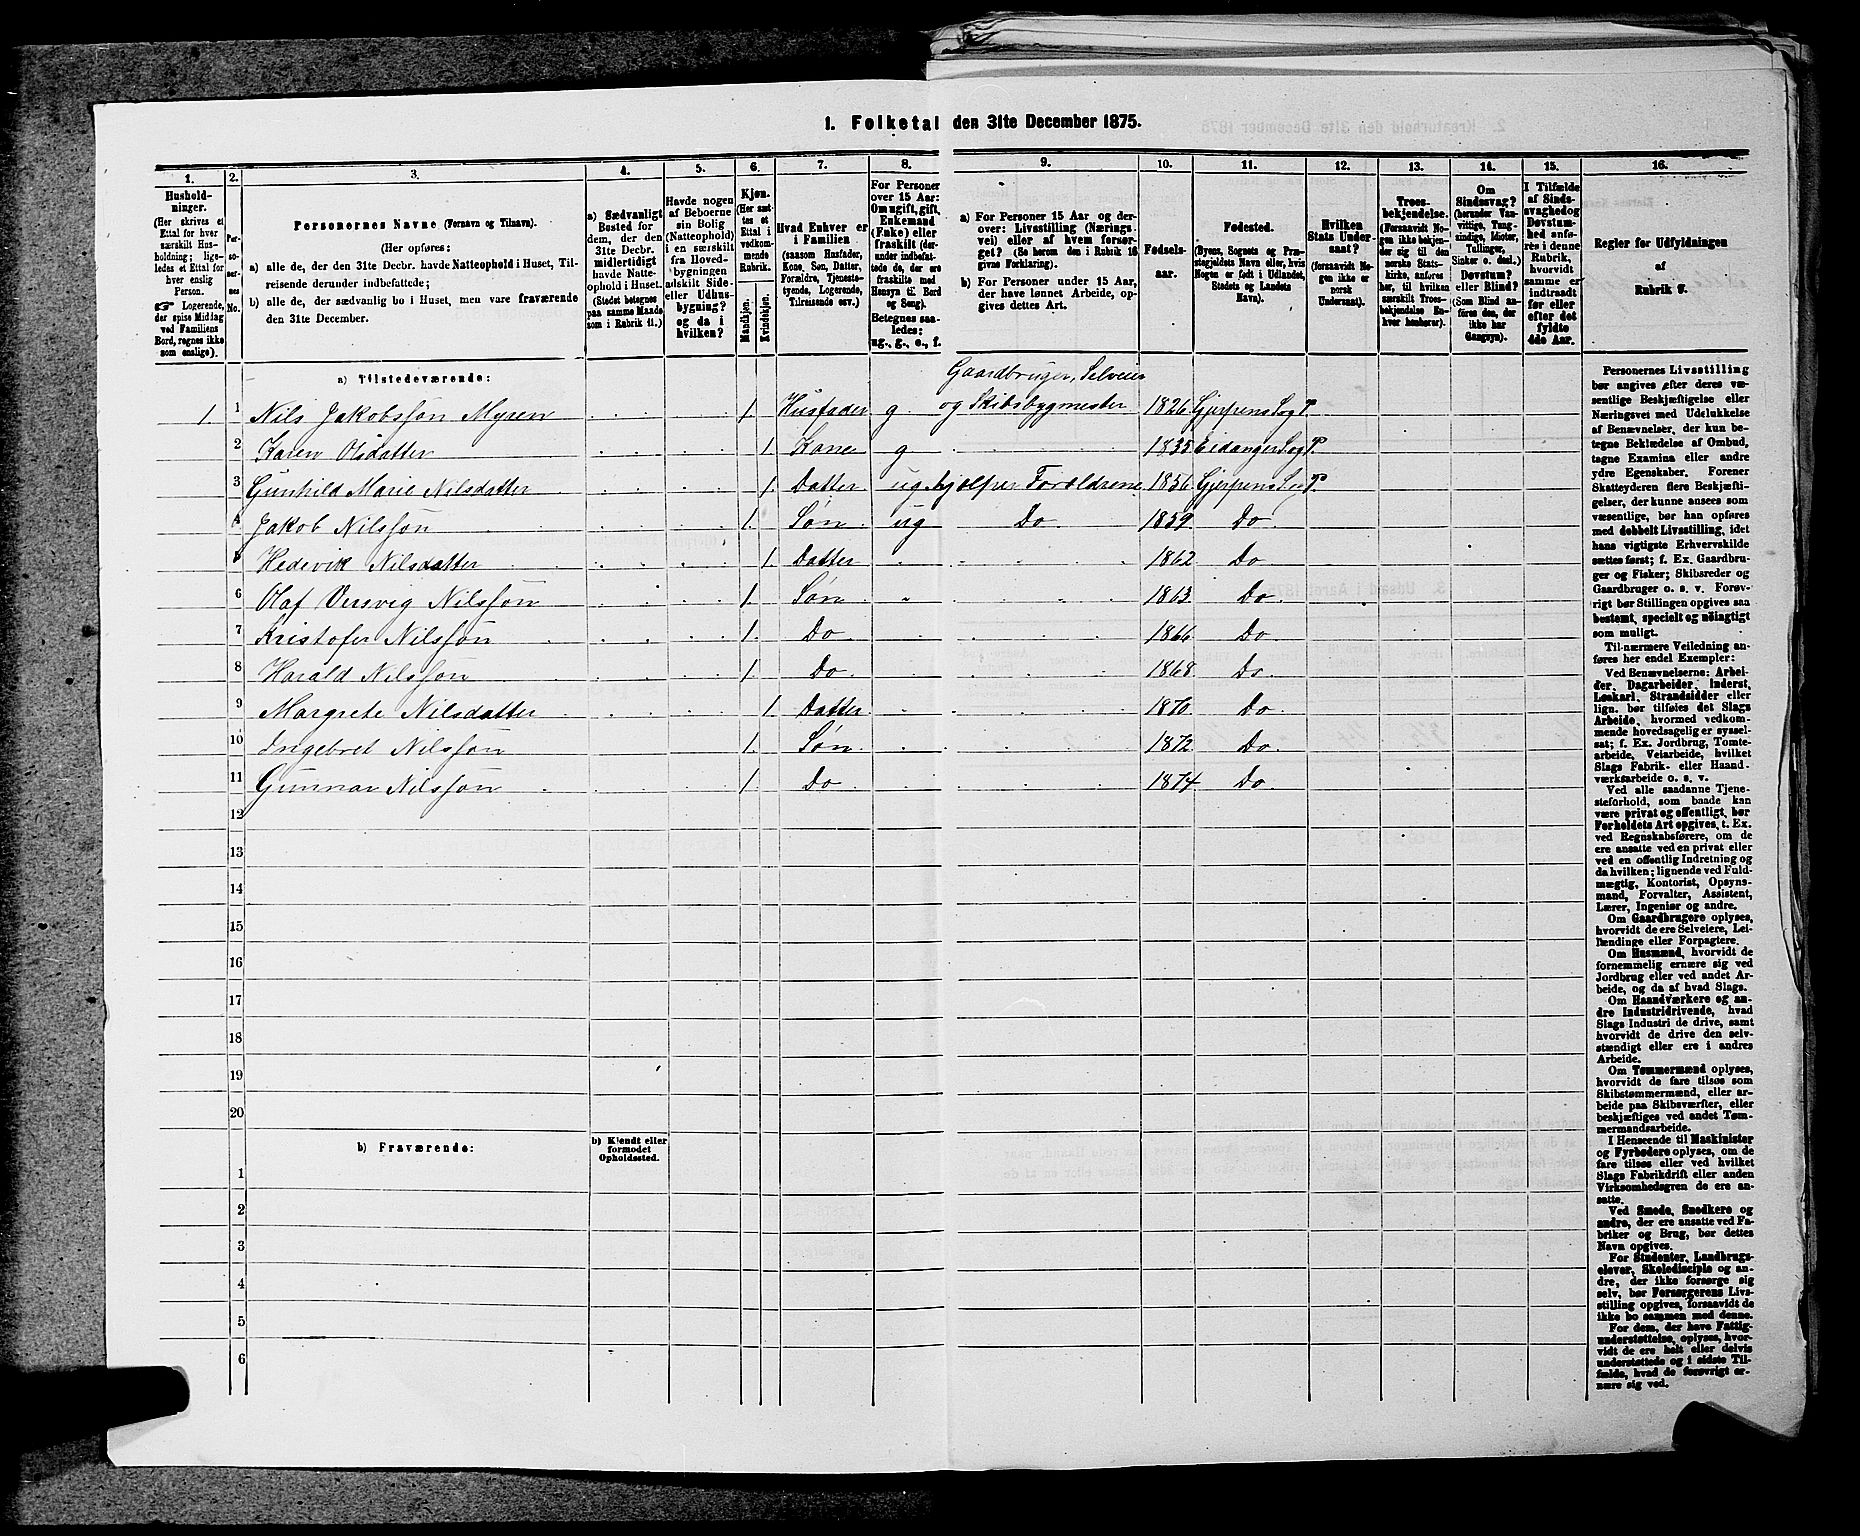 1. Folketal den 31te December 1875.
1. 2. 3. 4. 5. 6. 7. 8. 9. 10. 11. 12. 13. 14. 15. 16.
Hushold-
ninger.
(Her skrives et
Ettal for hver
særskilt Hus-
holdning; lige-
ledes et Ettal for
hver enslig
Person.
☞ Logerende,
der spise Middag
ved Familiens
Bord, regnes ikke
som enslige).
Per-
so-
ner-
nes
No.
Personernes Navne (Fornavn og Tilnavn).
(Her opføres:
a) alle de, der den 31te Decbr. havde Natteophold i Huset, Til-
reisende derunder indbefattede;
b) alle de, der sædvanlig bo i Huset, men vare fraværende
den 31te December.
a) Sædvanligt
Bosted for
dem, der den
31te Decbr.
midlertidigt
havde Natte-
ophold i Huset.
(Stedet betegnes
paa samme Maade
som i Rubrik 11.)
Havde nogen
af Beboerne
sin Bolig
(Natteophold)
i en særskilt
fra Hoved-
bygningen
adskilt Side-
eller Udhus-
bygning?
og da i
hvilken?
Kjøn.
(Her sæt-
tes et
Ettal i
vedkom-
mende
Rubrik.
Mandkjøn.
Kvindekjøn.
Hvad Enhver er
i Familien
(saasom Husfader,
Kone, Søn, Datter,
Forældre, Tjeneste-
tyende, Logerende,
Tilreisende osv.)
For Personer
over 15 Aar:
Om ugift, gift,
Enkemand
(Enke) eller
fraskilt (der-
under indbefat-
tede de, der ere
fraskilte med
Hensyn til Bord
og Seng).
Betegnes saa-
ledes:
ug., g., e., f.
a) For Personer 15 Aar og der-
over: Livsstilling (Nærings-
vei) eller af hvem forsør-
get? (Se herom den i Rubrik 16
givne Forklaring).
b) For Personer under 15 Aar,
der have lønnet Arbeide, op-
gives dettes Art.
Fødsels-
aar.
Fødested.
(Byens, Sognets og Præ-
stegjeldets Navn eller, hvis
Nogen er født i Udlandet,
Stedets og Landets
Navn).
Hvilken
Stats Under-
saat?
(forsaavidt No-
gen ikke er
norsk
Undersaat).
Troes-
bekjendelse.
(Forsaavidt No-
gen ikke bekjen-
der sig til den
norske Stats-
kirke, anføres
her, til hvilken
særskilt Troes-
bekjendelse En-
hver henhører).
Om
Sindssvag?
(herunder Van-
vittige, Tung-
sindige, Idioter,
Tullinger,
Sinker o. desl.)
Døvstum?
eller Blind?
(Som Blind an-
føres den, der
ikke har
Gangsyn).
I Tilfælde
af Sinds-
svaghed og
Døvstum-
hed anfø-
res i denne
Rubrik,
hvorvidt
samme er
indtraadt
før eller
efter det
fyldte
4de Aar.
Regler for Udfyldningen
af
Rubrik 9.
a) Tilstedeværende:
Gaardbruger, Selveier
1. 1 Nils Jakobssøn Myren 1 Husfader g og Skibsbygmester 1826 Gjerpens S og P.
2 Karen Olsdatter 1. Kone g 1835 Eidanger S og P.
3 Gunhild Marie Nilsdatter 1. Datter ug hjælper Forældrene 1856 Gjerpens S og P.
4 Jakob Nilssøn 1. Søn ug Do 1859 Do
5 Hedevik Nilsdatter 1. Datter 1862 Do
6 Olaf Versvig Nilssøn 1. Søn 1863 Do
7 Kristofer Nilssøn 1. Do 1866 Do
8 Harald Nilssøn 1. Do 1868 Do
9 Margrete Nilsdatter 1. Datter 1870 Do
10 Ingebret Nilssøn 1. Søn 1872 Do
11 Gunnar Nilssøn 1. Do 1874 Do.
12
13
14
15
16
17
18
19
20
b) Fraværende:
b) Kjendt eller
formodet
Opholdssted.
1
2
3
4
5
6
Personernes Livsstilling
bør angives efter deres væ-
sentlige Beskjæftigelse eller
Næringsvei med Udelukkelse
af Benævnelser, der kun be-
tegne Beklædelse af Ombud,
tagne Examina eller andre
ydre Egenskaber. Forener
Skatteyderen flere Beskjæfti-
gelser, der kunne ansees som
væsentlige, bør han opføres
med dobbelt Livsstilling, idet
hans vigtigste Erhvervskilde
sættes først; f. Ex. Gaardbru-
ger og Fisker; Skibsreder og
Gaardbruger o. s. v. Forøv-
rigt bør Stillingen opgives saa
bestemt, specielt og nøiagtigt
som muligt.
Til nærmere Veiledning an-
føres her endel Exempler:
Ved Benævnelserne: Arbei-
der, Dagarbeider, Inderst,
Løskarl, Strandsidder eller
lign. bør tilføies det Slags
Arbeide, hvormed vedkom-
mende hovedsagelig er syssel-
sat; f. Ex. Jordbrug, Tomte-
arbeide, Veiarbeide, hvilket
Slags Fabrik- eller Haand-
værksarbeide o. s. v.
Ved alle saadanne Tjene-
steforhold, som baade kan
være privat og offentligt, bør
Forholdets Art opgives, t. Ex.
ved Regnskabsførere, om de
ere ansatte ved en privat eller
ved en offentlig Indretning og
da hvilken; lignende ved Fuld-
mægtig, Kontorist, Opsyns-
mand, Forvalter, Assistent,
Lærer, Ingeniør og andre.
Om Gaardbrugere oplyses,
hvorvidt de ere Selveiere, Lei-
lændinge eller Forpagtere.
Om Husmænd, hvorvidt de
fornemmelig ernære sig ved
Jordbrug eller ved andet Ar-
beide, og da af hvad Slags.
Om Haandværkere og an-
dre Industridrivende, hvad
Slags Industri de drive, samt
hvorvidt de drive den selv-
stændigt eller ere i andres
Arbeide.
Om Tømmermænd oplyses,
hvorvidt de fare tilsøs som
Skibstømmermænd, eller ar-
beide paa Skibsværfter, eller
beskjæftiges ved andet Tøm-
mermandsarbeide.
I Henseende til Maskinister
og Fyrbødere oplyses, om de
fare tilsøs eller ved hvilket
Slags Fabrikdrift eller anden
Virksomhedsgren de ere an-
satte.
Ved Smede, Snedkere og
andre, der ere ansatte ved Fa-
briker og Brug, bør dettes
Navn opgives.
For Studenter, Landbrugs-
elever, Skoledisciple og an-
dre, der ikke forsørge sig
selv, bør Forsørgerens Livs-
stilling opgives, forsaavidt de
ikke bo sammen med denne.
For dem, der have Fattig-
understøttelse, oplyses, hvor-
vidt de ere helt eller delvis
understøttede og i sidste Til-
fælde, hvad de forøvrigt er-
nære sig ved.